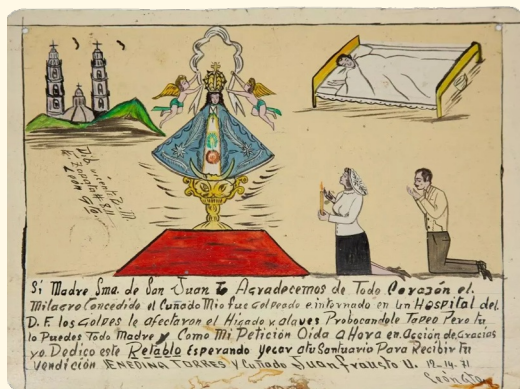 Dib vicente D. M
Zapata # 811
León Gto.
Si Madre Sma. de San Juan Te Agradecemos de Todo Corazón el.
Milagro Concedido el Cuñado Mio fue Golpeado e internado en un Hospital del
D. F. los Golpes le Afectaron el Hígado y Probocandole Pero tu
lo Puedes Todo Madre y Como Mi Petición Oida aHora en. Acción de Gracias
yo. Dedico este Retablo Esperando yegar atu Santuario Para Recibir tu
Vendición ENEDINA TORRES y Cuñado Juan frausto O. 12-14-71
León, Gto.